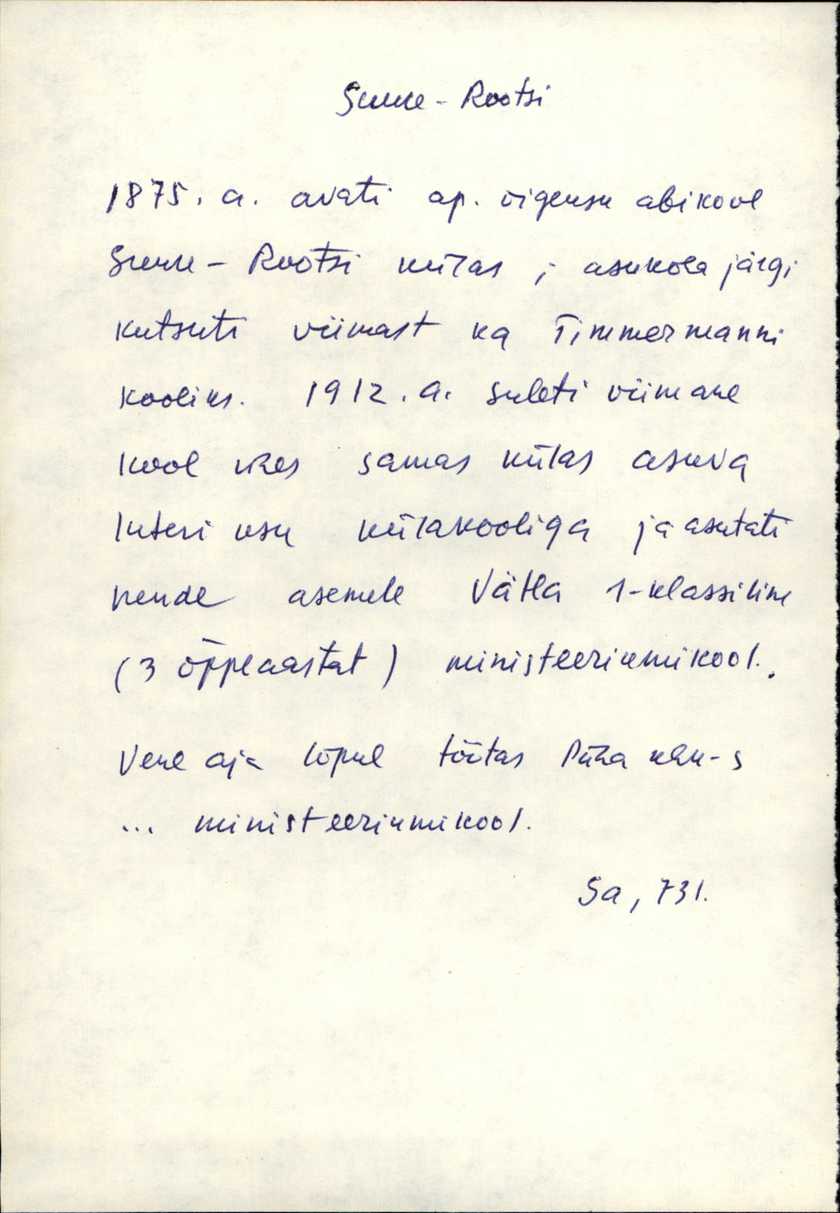 Suure-Rootsi
1875. a. avati ap. õigeusu abikool
Suure-Rootsi külas; asukoha järgi
kutsuti viimast ka Timmermanni
kooliks. 1912. a. suleti viimane
kool ühes samas külas asuva
luteri usu külakooliga ja asutati
nende asemele Vätta 1-klassiline
(3 õppeaastat) ministeeriumikool.
Vene aja lõpul töötas Püha khk-s
... ministeeriumikool.
Sa, 731.